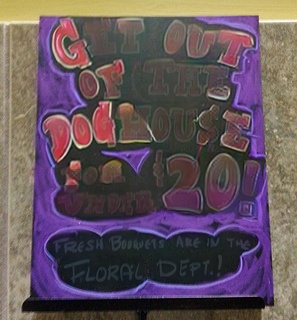 GET OUT
OF THE
DOGHOUSE
FOR
UNDER $20!
FRESH BOUQUETS ARE IN THE
FLORAL DEPT.!